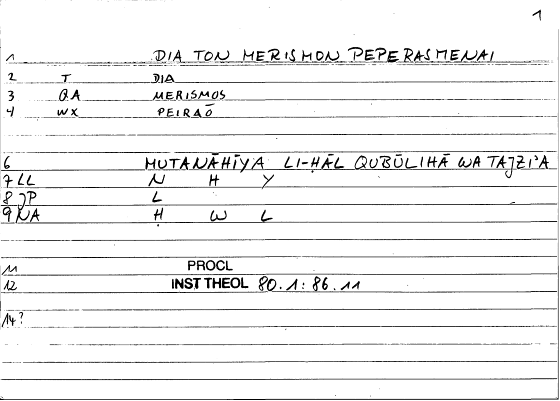 1
1 DIA TON MERISMON PEPERASMENAI
2 T DIA
3 QA MERISMOS
4 WX PEIRAŌ
6 MUTANĀHĪYA LI-ḤĀL QUBŪLIHĀ WA TAJZI'A
7 LL N H Y
8 JP L
9 NA Ḥ W L
11 PROCL
12 INST THEOL 80.1:86.11
14?